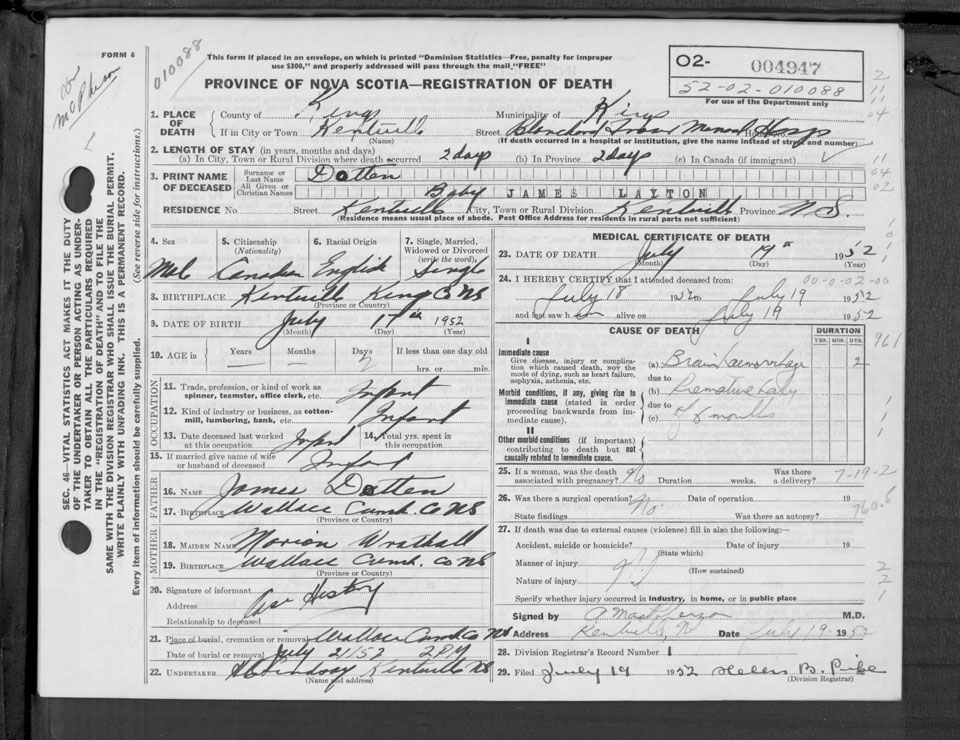 FORM 6
010088
This form if placed in an envelope, on which is printed "Dominion Statistics—Free, penalty for improper
use $300," and properly addressed will pass through the mail, "FREE"
PROVINCE OF NOVA SCOTIA—REGISTRATION OF DEATH
O2- 004947
52-02-010088
For use of the Department only
SEC. 46—VITAL STATISTICS ACT MAKES IT THE DUTY
OF THE UNDERTAKER OR PERSON ACTING AS UNDER-
TAKER TO OBTAIN ALL THE PARTICULARS REQUIRED
IN THE "REGISTRATION OF DEATH" AND TO FILE THE
SAME WITH THE DIVISION REGISTRAR WHO SHALL ISSUE THE BURIAL PERMIT.
WRITE PLAINLY WITH UNFADING INK. THIS IS A PERMANENT RECORD.
(See reverse side for instructions.)
Every item of information should be carefully supplied.
1. PLACE OF DEATH
County of Kings Municipality of Kings
If in City or Town Kentville Street Blanchard Fraser Memorial Hosp
(Name) (If death occurred in a hospital or institution, give the name instead of street and number)
2. LENGTH OF STAY (in years, months and days)
(a) In City, Town or Rural Division where death occurred 2 days (b) In Province 2 days (c) In Canada (if immigrant)
3. PRINT NAME OF DECEASED
Surname or Last Name Dotten
All Given or Christian Names Baby JAMES LAYTON
RESIDENCE No. Street Kentville City, Town or Rural Division Kentville Province N.S.
(Residence means usual place of abode. Post Office Address for residents in rural parts not sufficient)
4. Sex 5. Citizenship (Nationality) 6. Racial Origin 7. Single, Married, Widowed or Divorced (write the word)
Male Canadian English Single
8. BIRTHPLACE Kentville Kings Co NS
(Province or Country)
9. DATE OF BIRTH July 17th 1952
(Month) (Day) (Year)
10. AGE in Years Months Days If less than one day old
2 hrs. or min.
OCCUPATION
11. Trade, profession, or kind of work as spinner, teamster, office clerk, etc. Infant
12. Kind of industry or business, as cotton-mill, lumbering, bank, etc. Infant
13. Date deceased last worked at this occupation Infant 14. Total yrs. spent in this occupation
15. If married give name of wife or husband of deceased Infant
FATHER
16. NAME James Dotten
17. BIRTHPLACE Wallace Cumb. Co NS
(Province or Country)
MOTHER
18. MAIDEN NAME Marion Wrathall
19. BIRTHPLACE Wallace Cumb. Co NS
(Province or Country)
20. Signature of informant Case History
Address
Relationship to deceased
21. Place of burial, cremation or removal Wallace Cumb Co NS
Date of burial or removal July 21/52 2 PM
22. UNDERTAKER Kentville NS
(Name and address)
MEDICAL CERTIFICATE OF DEATH
23. DATE OF DEATH July 1952
(Month) (Day) (Year)
24. I HEREBY CERTIFY that I attended deceased from: 00-0-02-00
July 18 1952 to July 19 1952
and last saw h alive on July 19 1952
CAUSE OF DEATH DURATION
YRS. MOS. DYS.
961
I
Immediate cause
Give disease, injury or complication which caused death, not the mode of dying, such as heart failure, asphyxia, asthenia, etc.
(a) Brain haemorrhage 2
due to
Morbid conditions, if any, giving rise to immediate cause (stated in order proceeding backwards from immediate cause).
(b) Premature baby
due to
(c) of 6 months
II
Other morbid conditions (if important) contributing to death but not causally related to immediate cause.
25. If a woman, was the death associated with pregnancy? No Duration weeks. Was there a delivery? 7-19-2
26. Was there a surgical operation? No. Date of operation 19
State findings Was there an autopsy? 760.
27. If death was due to external causes (violence) fill in also the following:—
Accident, suicide or homicide? Date of injury 19
(State which)
Manner of injury
(How sustained)
Nature of injury
Specify whether injury occurred in industry, in home, or in public place
Signed by M.D.
Address Kentville, NS Date July 19 1952
28. Division Registrar's Record Number 1
29. Filed July 19 1952 Helen B. Pike
(Division Registrar)